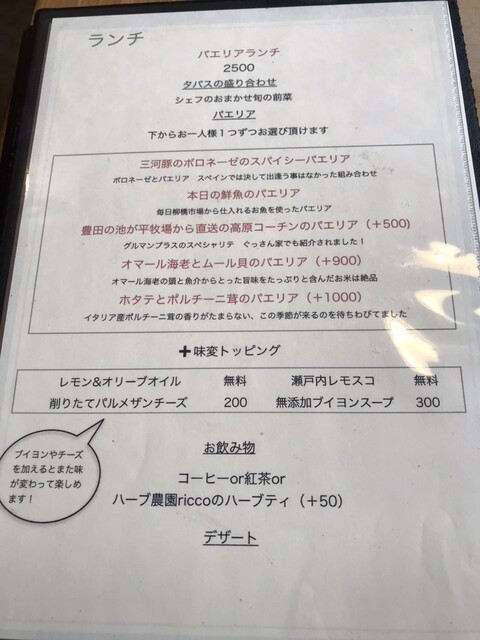 ランチ
パエリアランチ
2500
タパスの盛り合わせ
シェフのおまかせ旬の前菜
パエリア
下からお一人様1つずつお選び頂けます
三河豚のボロネーゼのスパイシーパエリア
ボロネーゼとパエリア スペインでは決して出逢う事はなかった組み合わせ
本日の鮮魚のパエリア
毎日柳橋市場から仕入れるお魚を使ったパエリア
豊田の池が平牧場から直送の高原コーチンのパエリア（+500)
グルマンプラスのスペシャリテ ぐっさん家でも紹介されました！
オマール海老とムール貝のパエリア（+900）
オマール海老の頭と魚介からとった旨味をたっぷりと含んだお米は絶品
ホタテとポルチーニ茸のパエリア（+1000）
イタリア産ポルチーニ茸の香りがたまらない、この季節が来るのを待ちわびてました
+味変トッピング
レモン&オリーブオイル 無料 瀬戸内レモスコ 無料
削りたてパルメザンチーズ 200 無添加ブイヨンスープ 300
ブイヨンやチーズ
を加えるとまた味
が変わって楽しめ
ます！
お飲み物
コーヒーor紅茶or
ハーブ農園riccoのハーブティ（+50）
デザート